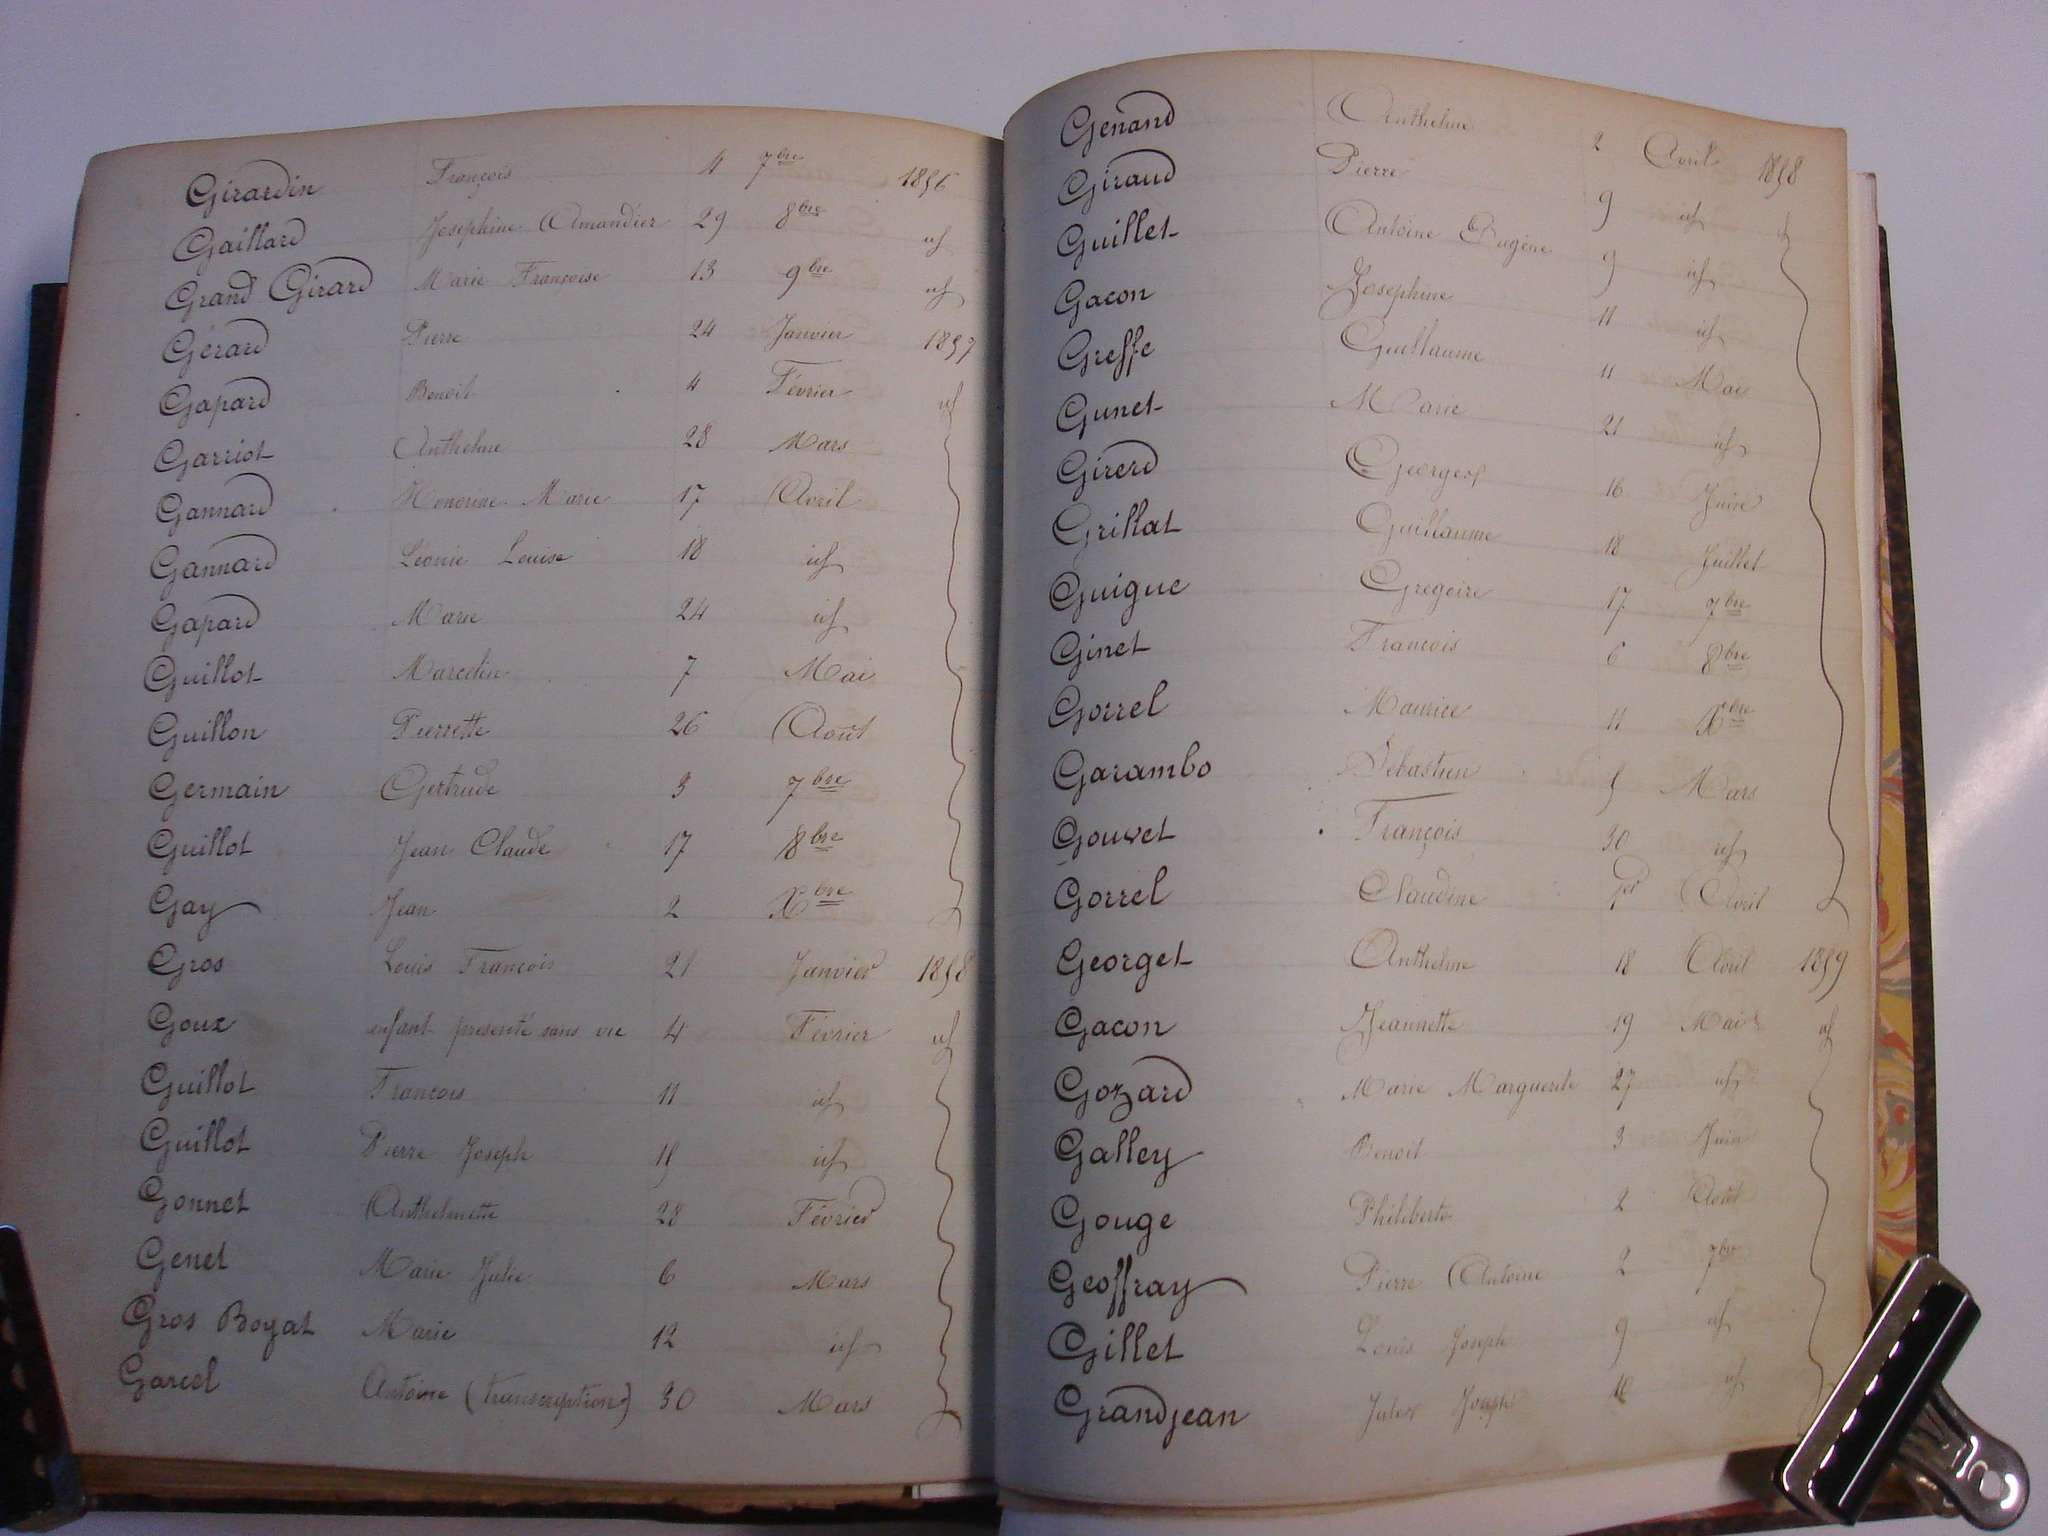 Girardin François 4 7bre 1856
Gaillard Josephine Amandier 29 8bre id
Grand Girard Marie Françoise 13 9bre id
Gérard Pierre 24 Janvier 1857
Gapard Benoit 4 Février id
Garriot Anthelme 28 Mars
Gannard Honorine Marie 17 Avril
Gannard Léonie Louise 18 id
Gapard Marie 24 id
Guillot Marcelin 7 Mai
Guillon Pierrette 26 Août
Germain Gertrude 3 7bre
Guillot Jean Claude 17 8bre
Gay Jean 2 Xbre
Gros Louis François 21 Janvier 1858
Goux enfant présenté sans vie 4 Février id
Guillot François 11 id
Guillot Pierre Joseph 15 id
Gonnet Anthelmette 28 Février
Genet Marie Julie 6 Mars
Gros Boyat Marie 12 id
Garcel Antoine (transcription) 30 Mars
Genand Anthelme 2 Avril 1858
Giraud Pierre 9 id id
Guillet Antoine Eugène 9 id
Gacon Josephine 11 id
Greffe Guillaume 11 Mai
Gunet Marie 21 id
Girerd Georges 16 Juin
Grillat Guillaume 18 Juillet
Guigue Gregoire 17 7bre
Ginet François 6 8bre
Gorrel Maurice 11 Xbre
Garambo Sébastien 5 Mars
Gouvet François 30 id
Gorrel Claudine 1er Avril
Georget Anthelme 18 Avril 1859
Gacon Jeannette 19 Mai id
Gozard Marie Marguerite 27 id
Galley Benoit 3 Juin
Gouge Philiberte 2 Août
Geoffray Pierre Antoine 2 7bre
Gillet Louis Joseph 9 id
Grandjean Jules Joseph id